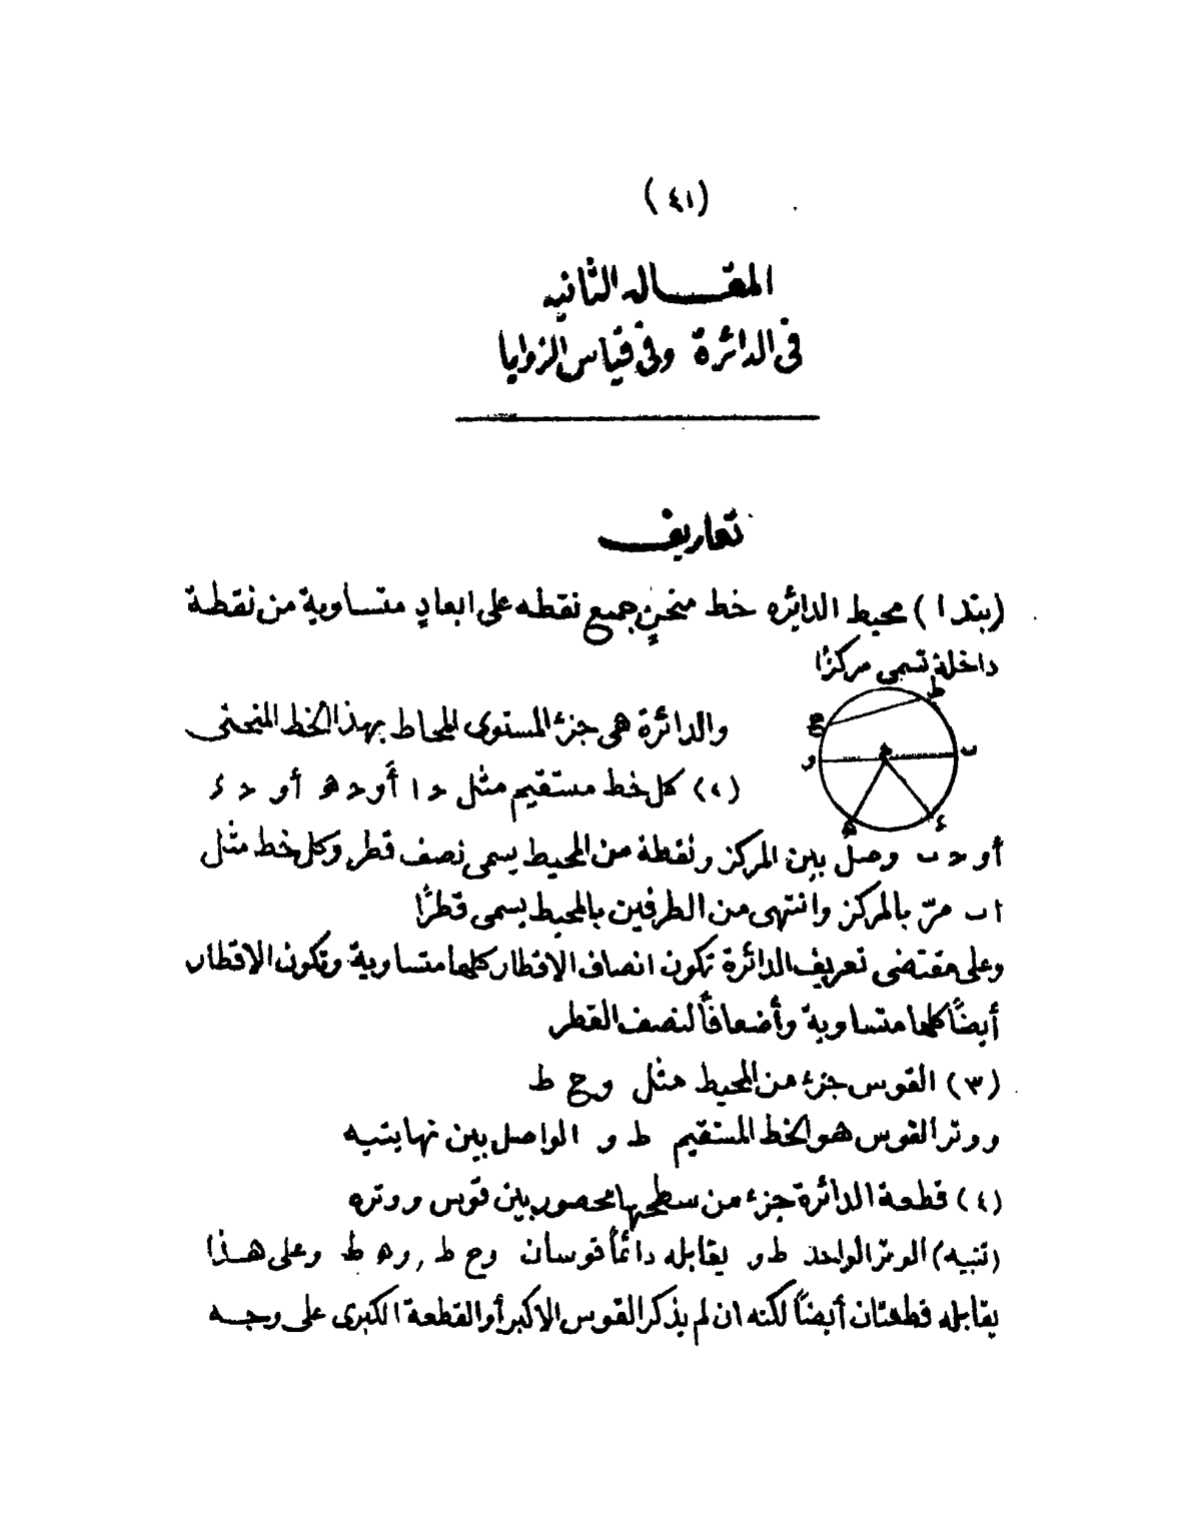 (٤١)
المقـــاله الثانيه
فى الدائرة وفى قياس الزوايا
تعاريف
(بتدا) محيط الدايره خط منحنٍ جميع نقطه على ابعادٍ متساوية من نقطة
داخلة تسمى مركزًا
ط
ح
والدائرة هى جزء المستوى المحاط بهذا الخط المنحنى
و
د
ب
(٢) كل خط مستقيم مثل د ا أو د ه أو د ء
ه
ء
أو د ب وصل بين المركز ونقطة من المحيط يسمى نصف قطر وكل خط مثل
ا ب مرّ بالمركز وانتهى من الطرفين بالمحيط يسمى قطرًا
وعلى مقتضى تعريف الدائرة تكون انصاف الاقطار كلها متساوية وتكون الاقطار
أيضًا كلها متساوية وأضعافًا لنصف القطر
(٣) القوس جزء من المحيط مثل و ح ط
ووتر القوس هو الخط المستقيم ط و الواصل بين نهايتيه
(٤) قطعة الدائرة جزء من سطحها محصور بين قوس ووتره
(تنبيه) الوتر الواحد ط و يقابله دائمًا قوسان و ح ط , و ه ط وعلى هــذا
يقابله قطعتان أيضًا لكنه ان لم يذكر القوس الاكبر أو القطعة الكبرى على وجــه